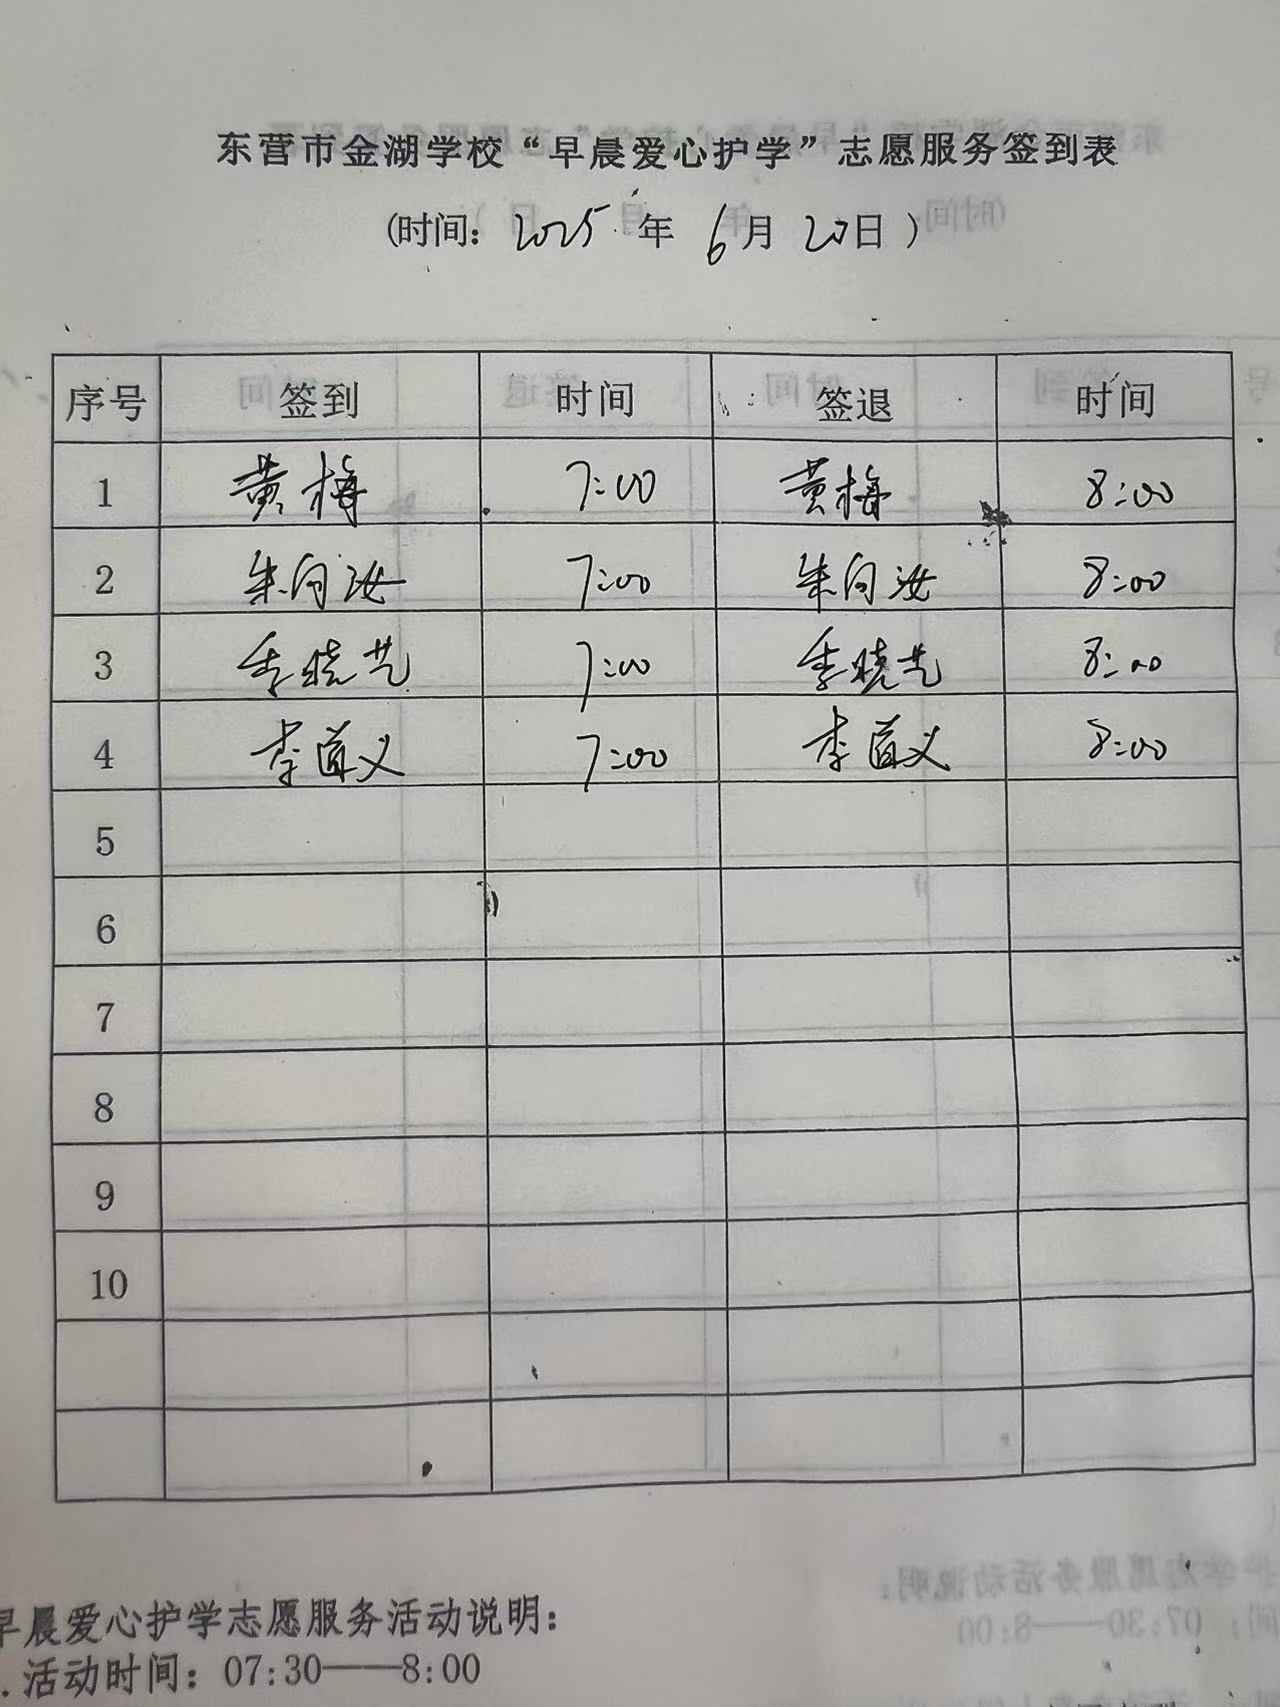 东营市金湖学校“早晨爱心护学”志愿服务签到表
(时间: 2025 年 6 月 20 日 )
序号 签到 时间 签退 时间
1 黄梅 7:00 黄梅 8:00
2 朱向汝 7:00 朱向汝 8:00
3 季晓艺 7:00 季晓艺 8:00
4 李道义 7:00 李道义 8:00
5
6
7
8
9
10
早晨爱心护学志愿服务活动说明:
.活动时间: 07:30——8:00